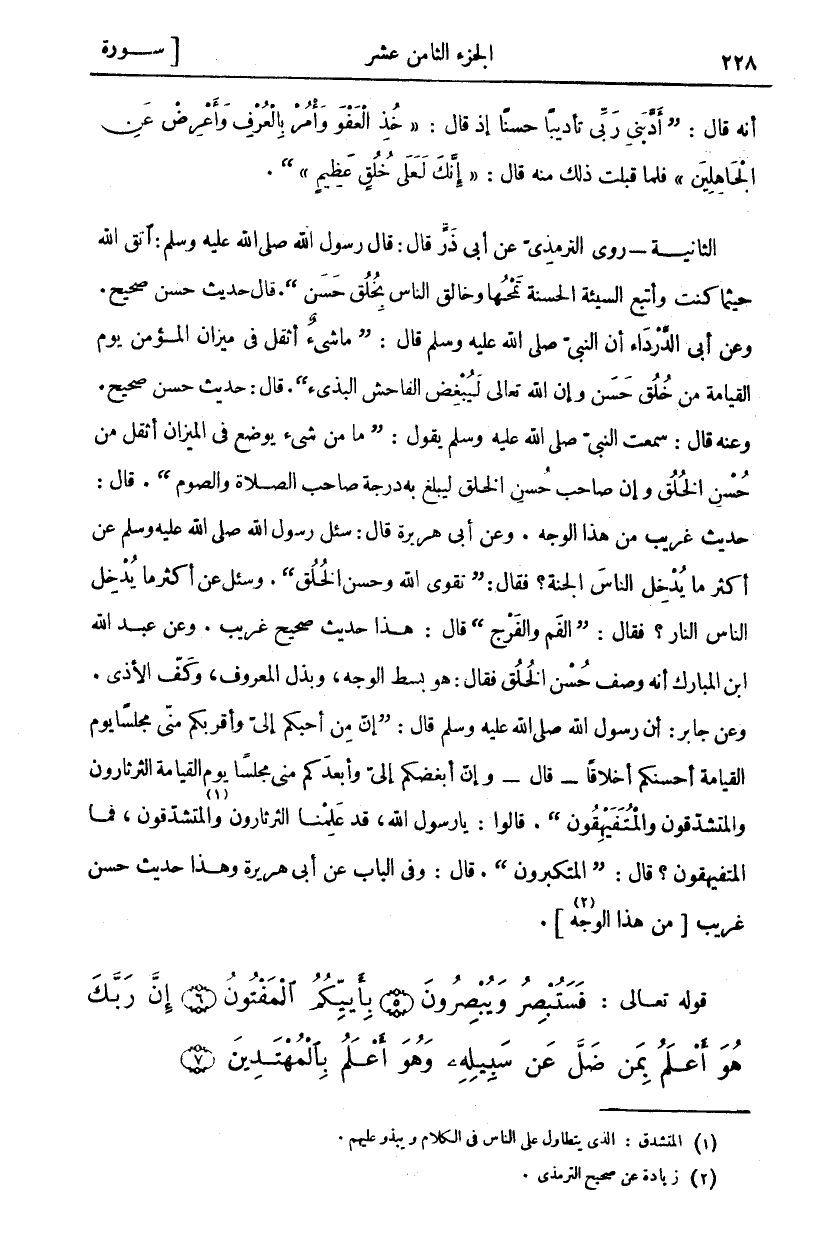 ٢٢٨ الجزء الثامن عشر [ ســـورة
أنه قال : ” أَدَّبَنِي رَبِّي تأديبًا حسنًا إذ قال : « خُذِ الْعَفْوَ وَأْمُرْ بِالْعُرْفِ وَأَعْرِضْ عَنِ
الْجَاهِلِينَ » فلما قبلت ذلك منه قال : « إِنَّكَ لَعَلَى خُلُقٍ عَظِيمٍ » “ .
الثانيــة ــ روى الترمذىّ عن أبى ذَرٍّ قال : قال رسول الله صلى الله عليه وسلم : ٱتق الله
حيثما كنت وأتبع السيئة الحسنة تَمْحُها وخالق الناس بِخُلُق حَسَن “ . قال حديث حسن صحيح .
وعن أبى الدَّرْدَاء أن النبىّ صلى الله عليه وسلم قال : ” ماشىءٌ أثقل فى ميزان المــؤمن يوم
القيامة من خُلُق حَسَن و إن الله تعالى لَيُبْغِض الفاحش البذىء“ . قال : حديث حسن صحيح .
وعنه قال : سمعت النبىّ صلى الله عليه وسلم يقول : ” ما من شىء يوضع فى الميزان أثقل من
حُسْنِ الخُلُق و إن صاحب حُسنِ الخلق ليبلغ به درجة صاحب الصــلاة والصوم “ . قال :
حديث غريب من هذا الوجه . وعن أبى هريرة قال : سئل رسول الله صلى الله عليه وسلم عن
أكثر ما يُدْخِل الناسَ الجنة ؟ فقال : ” تقوى الله وحسن الخُلُق“ . وسئل عن أكثر ما يُدْخِل
الناس النار ؟ فقال : ” الفَم والفَرْج “ قال : هــذا حديث صحيح غريب . وعن عبــد الله
ابن المبارك أنه وصف حُسْن الخُلُق فقال : هو بسط الوجه ، وبذل المعروف ، وكَفّ الأذى .
وعن جابر : أن رسول الله صلى الله عليه وسلم قال : ”إنّ مِن أحبكم إلىّ وأقربكم منّى مجلسًا يوم
القيامة أحسنكم أخلاقًا ــ قال ــ و إنّ أبغضكم إلىّ وأبعدَكم منى مجلسًا يوم القيامة الثرثارون
والمتشدّقون (١) والْمُتَفَيْهِقُون “ . قالوا : يارسول الله ، قد عَلِمْنــا الثرثارون والمتشدّقون ، فمــا
المتفيهقون ؟ قال : ” المتكبرون “ . قال : وفى الباب عن أبى هريرة وهــذا حديث حسن
غريب [ من هذا الوجه (٢) ] .
قوله تعــالى : فَسَتُبْصِرُ وَيُبْصِرُونَ ۝٥ بِأَييِّكُمُ ٱلْمَفْتُونُ ۝٦ إِنَّ رَبَّكَ
هُوَ أَعْــلَمُ بِمَن ضَلَّ عَن سَبِيلِهِۦ وَهُوَ أَعْلَمُ بِٱلْمُهْتَدِينَ ۝٧
(١) المتشدق : الذى يتطاول على الناس فى الكلام و يبذو عليهم .
(٢) زيادة عن صحيح الترمذى .